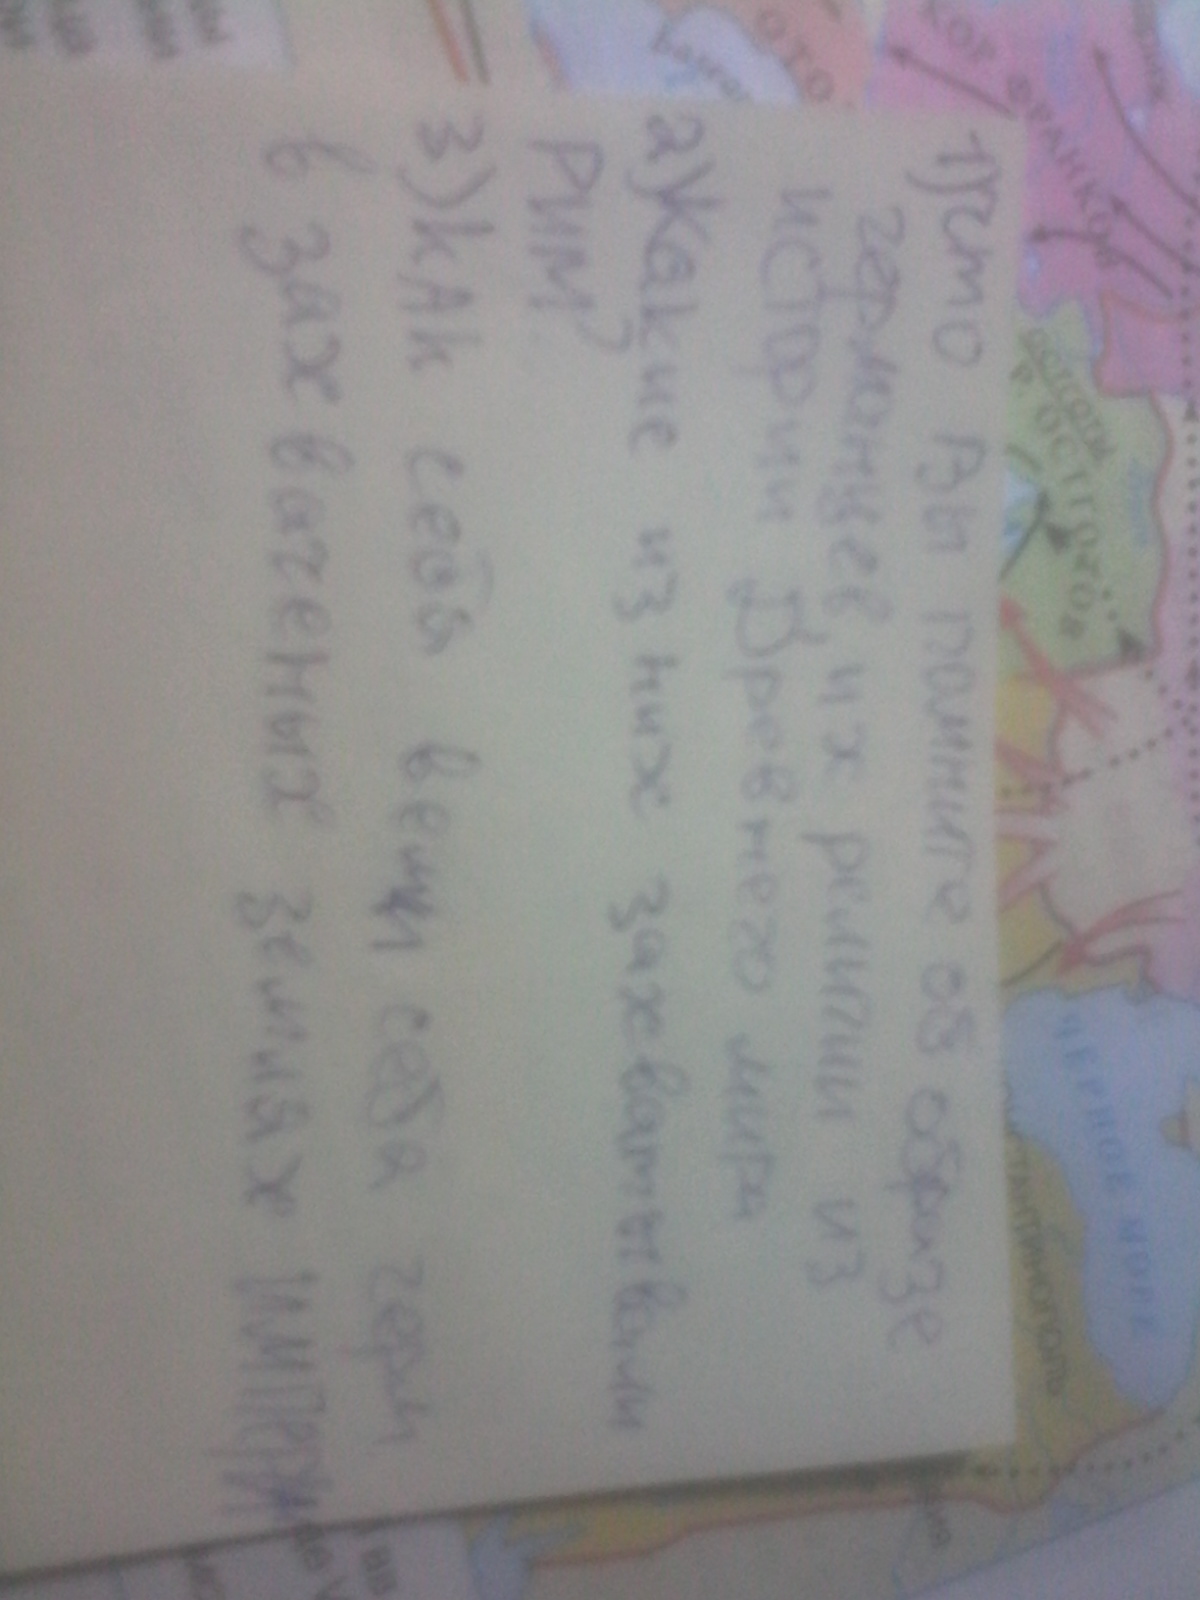 1) Что Вы помните об образе
германцев и их религии из
истории Древнего мира
2) Какие из них захватывали
РИМ?
3) КАК себя вели себя герм
в захваченых землях ИМПРИ
ЧЕРНОЕ МОРЕ
КОР ФРАНКОВ
ОСТГОТЫ
ОСТГОТОВ